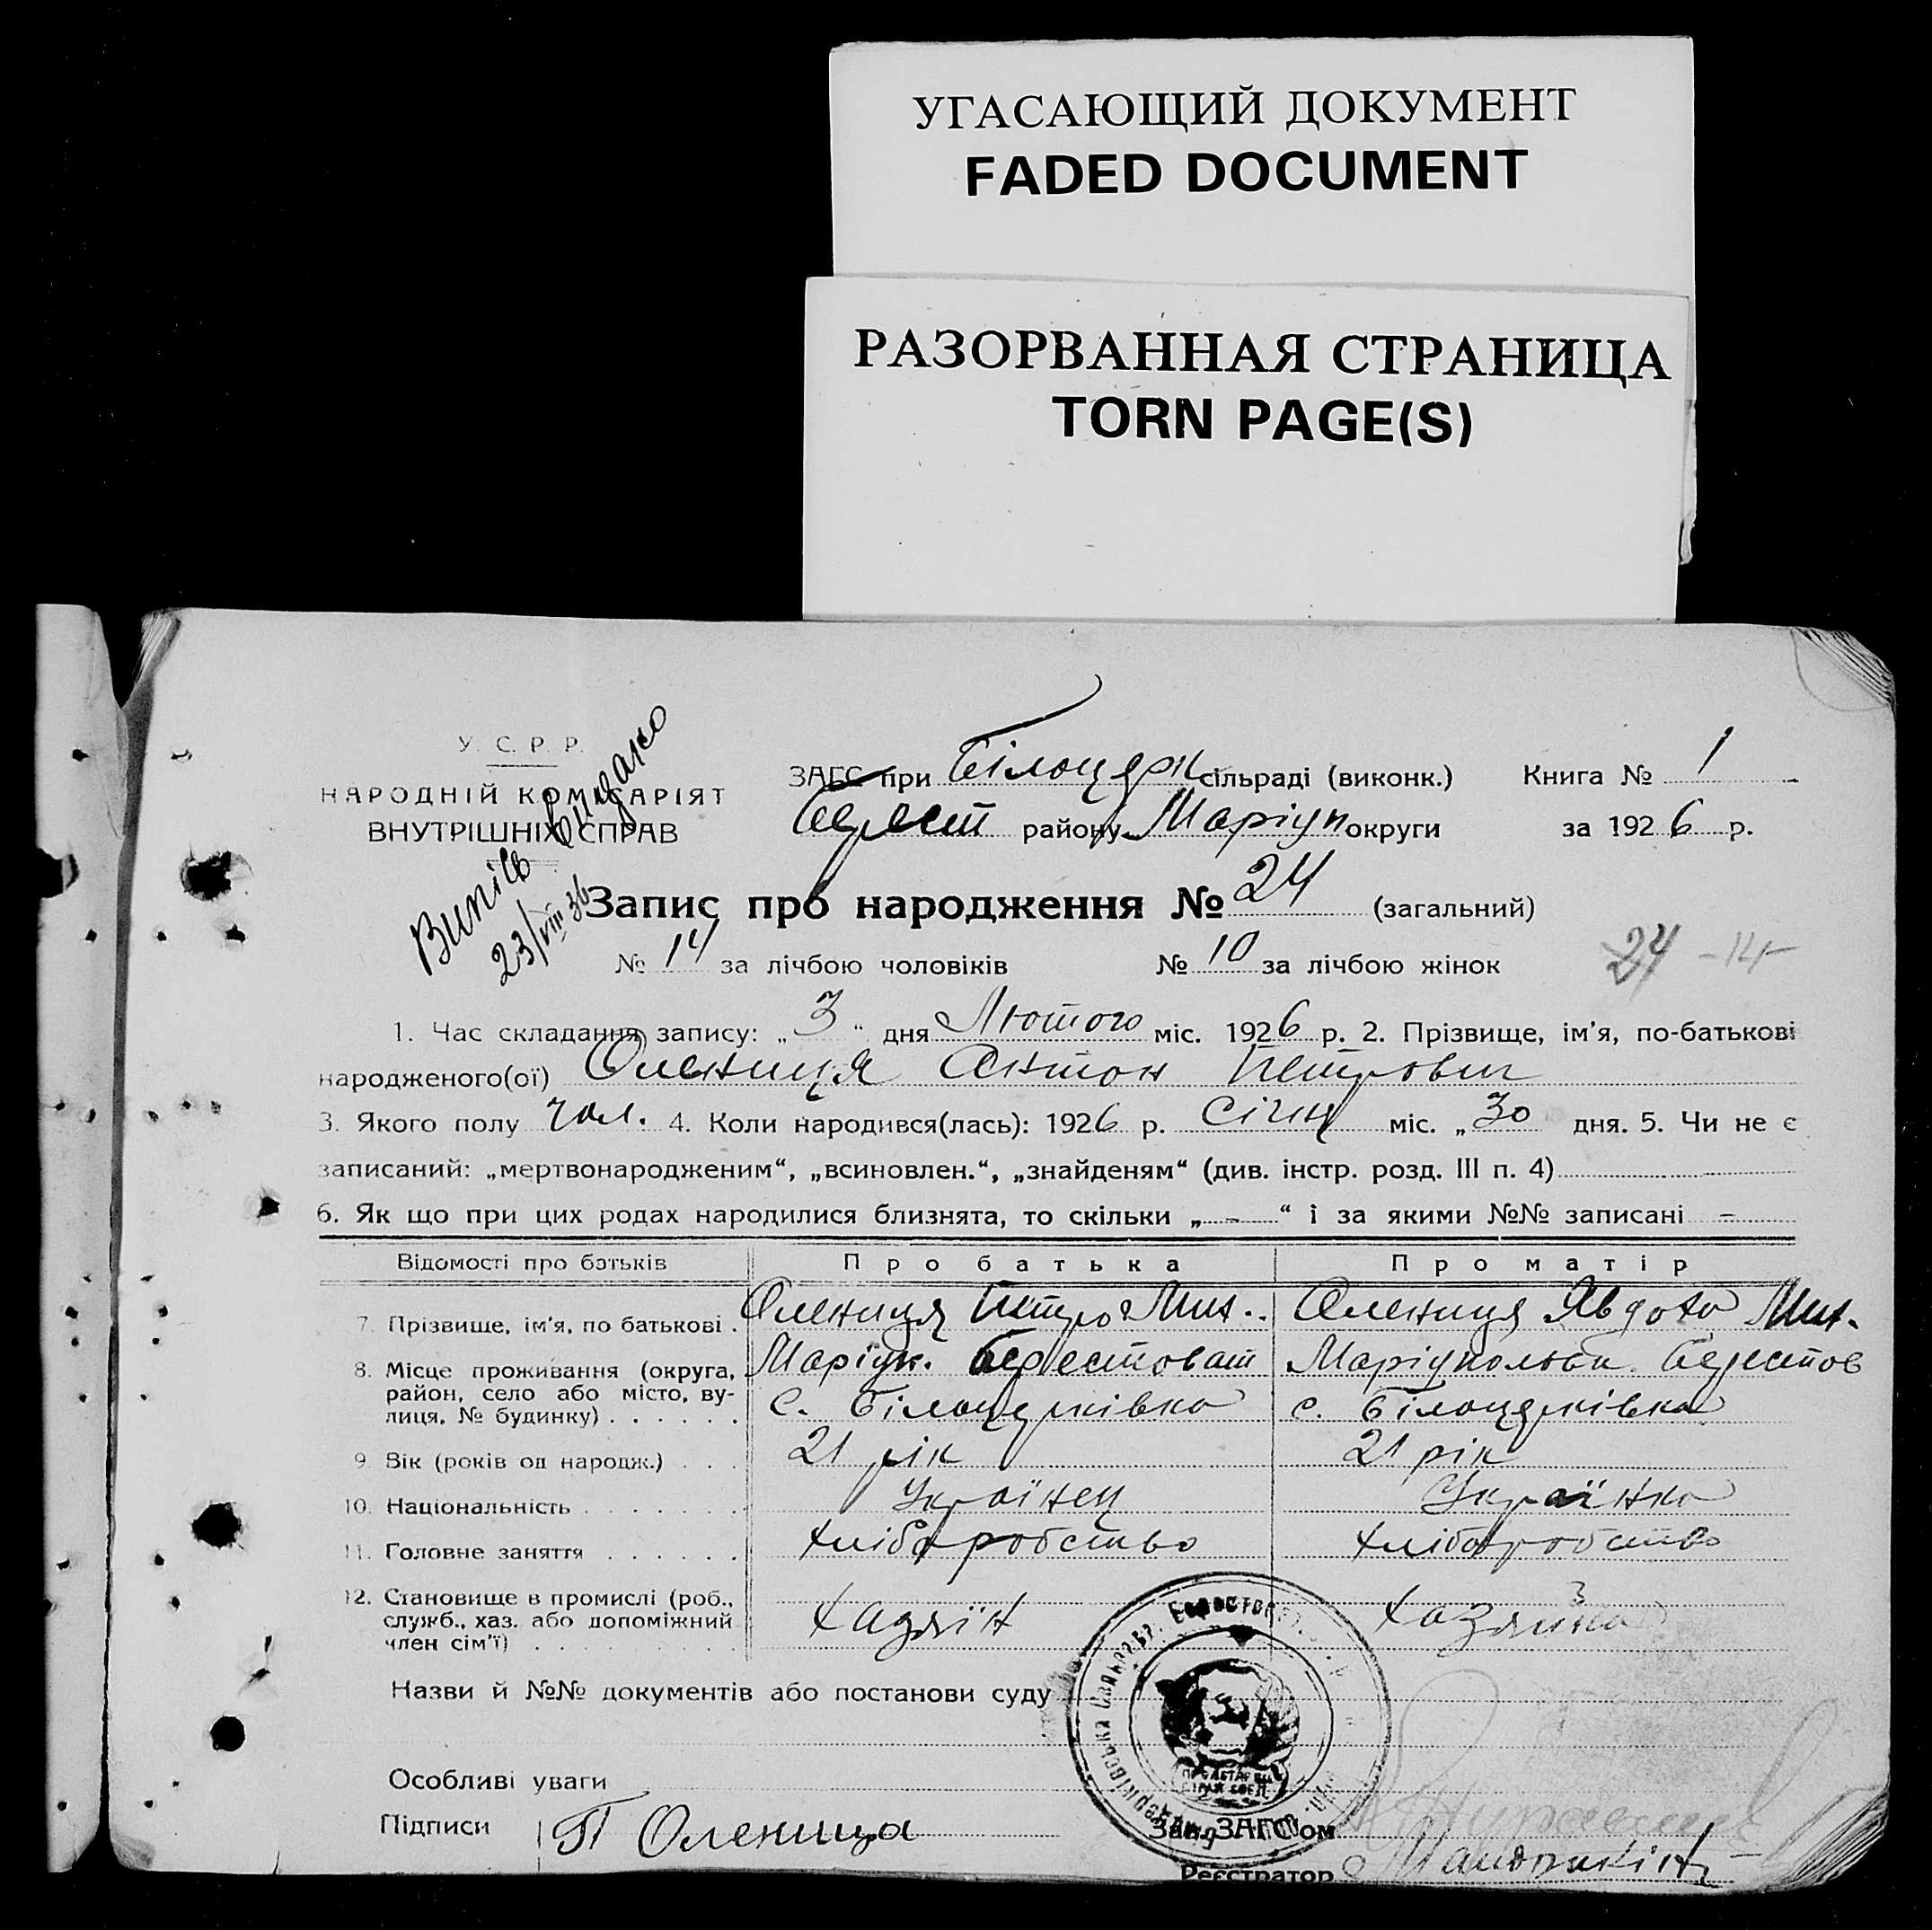 УГАСАЮЩИЙ ДОКУМЕНТ
FADED DOCUMENT
РАЗОРВАННАЯ СТРАНИЦА
TORN PAGE(S)
У. С. Р. Р.
НАРОДНІЙ КОМІСАРІЯТ
ВНУТРІШНІХ СПРАВ
Випис видано
23/VIII 36
ЗАГС при Білоцерк сільраді (виконк.) Книга № 1
Берест району Маріуп округи за 1926 р.
Запис про народження № 24 (загальний)
№ 14 за лічбою чоловіків № 10 за лічбою жінок
24 -14-
1. Час складання запису: „3“ дня Лютого міс. 1926 р. 2. Прізвище, ім’я, по-батькові
народженого(ої) Олениця Антон Петрович
3. Якого полу чол. 4. Коли народився(лась): 1926 р. Січня міс. „30 дня. 5. Чи не є
записаний: „мертвонародженим“, „всиновлен.“, „знайденям“ (див. інстр. розд. III п. 4)
6. Як що при цих родах народилися близнята, то скільки „ - “ і за якими №№ записані -
Відомості про батьків Про батька Про матір
7. Прізвище, ім’я, по батькові . Олениця Петро Мих. Олениця Явдоха Мих.
8. Місце проживання (округа, район, село або місто, вулиця, № будинку) . . . . . .
Маріуп. Берестоват
с. Білоцерківка
Маріупольськ. Берестов
с. Білоцерківка
9. Вік (років од народж.) . . . 21 рік 21 рік
10. Національність . . . . . . . Українец Українка
11. Головне заняття . . . . . . Хліборобство Хліборобство
12. Становище в промислі (роб., служб., хаз. або допоміжний член сім’ї) . . . . . . . .
Хазяїн
Хазяйка
Назви й №№ документів або постанови суду
Особливі уваги
Підписи П Олениця
Зав. ЗАГС’ом
Реєстратор